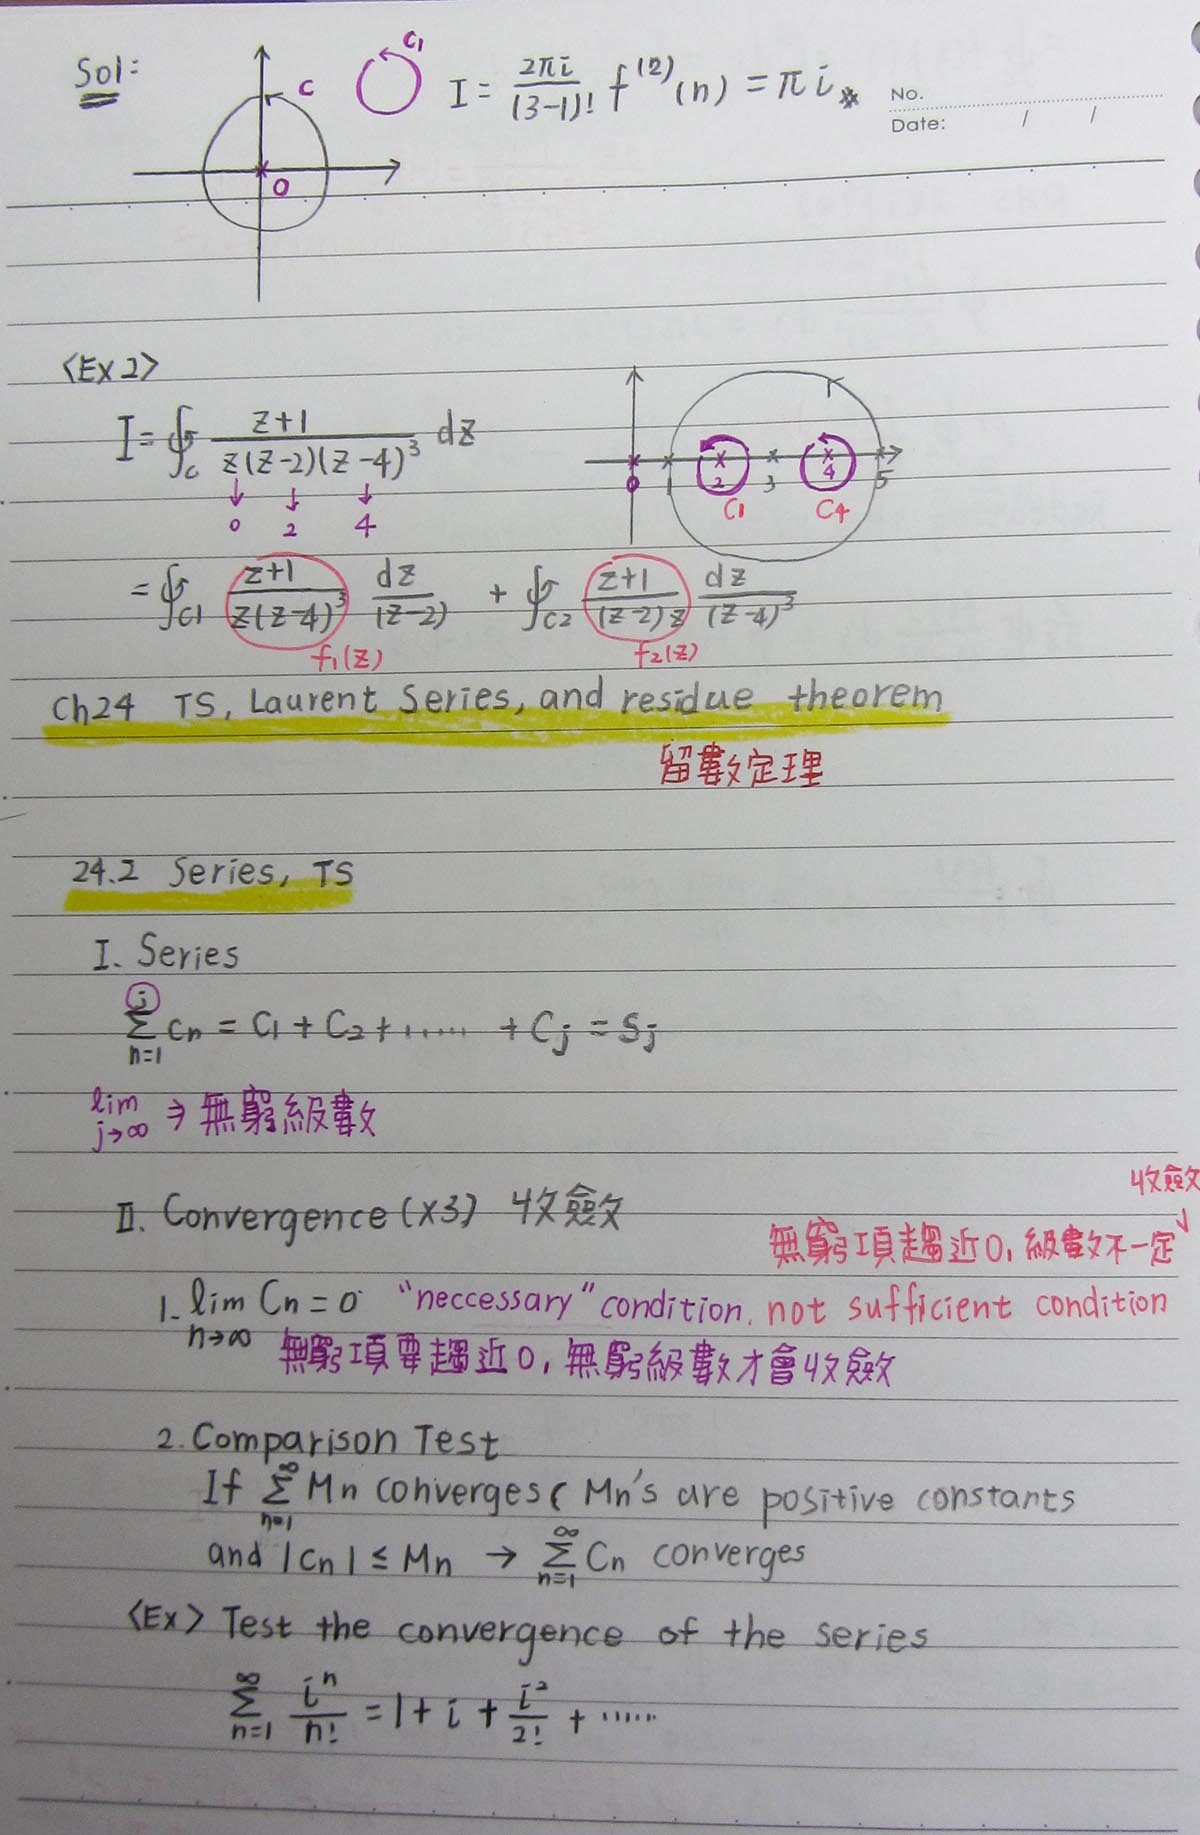 Sol:
C
C1
I = 2πi/(3-1)! f^(2)(n) = πi※
No.
Date: / /
0
<Ex2>
I = ∮_C (z+1)/(z(z-2)(z-4)^3) dz
↓ ↓ ↓
0 2 4
0 1 2 3 4 5
C1 C4
= ∮_C1 (z+1)/(z(z-4)^3) dz/(z-2) + ∮_C2 (z+1)/((z-2)z) dz/(z-4)^3
f1(z) f2(z)
Ch24 TS, Laurent Series, and residue theorem
留數定理
24.2 Series, TS
I. Series
j
Σ Cn = C1 + C2 + ...... + Cj = Sj
n=1
lim ⇒ 無窮級數
j→∞
II. Convergence (x3) 收斂
收斂
無窮項趨近0, 級數不一定↓
1. lim Cn = 0 "neccessary" condition. not sufficient condition
n→∞ 無窮項要趨近0, 無窮級數才會收斂
2. Comparison Test
If Σ_{n=1}^{∞} Mn converges ( Mn's are positive constants
and |Cn| ≤ Mn → Σ_{n=1}^{∞} Cn converges
<Ex> Test the convergence of the series
Σ_{n=1}^{∞} i^n/n! = 1 + i + i^2/2! + ......